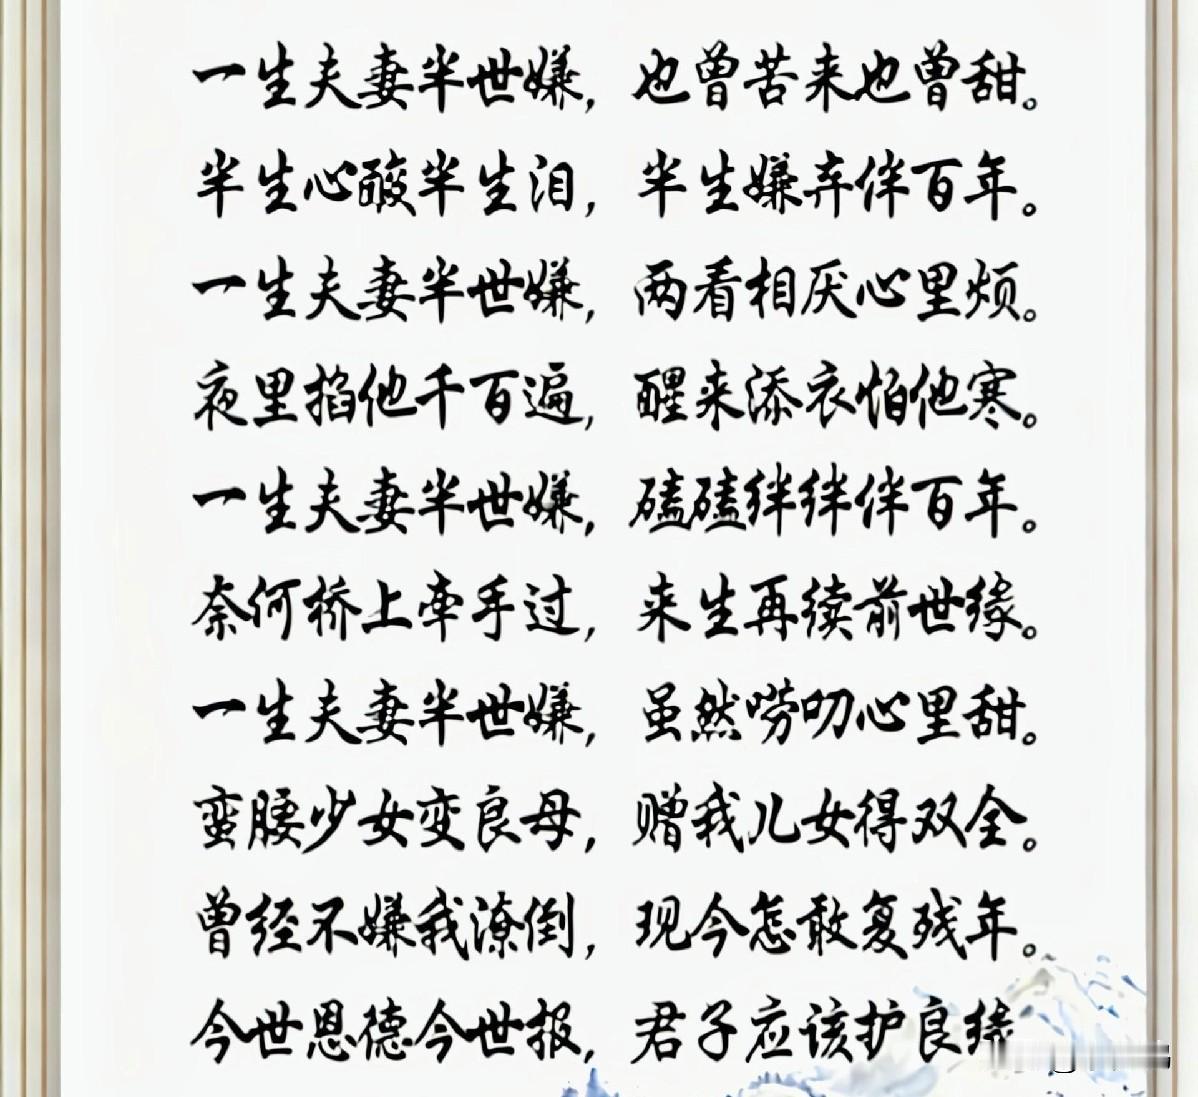 一生夫妻半世嫌，也曾苦来也曾甜。
半生心酸半生泪，半生嫌弃伴百年。
一生夫妻半世嫌，两看相厌心里烦。
夜里掐他千百遍，醒来添衣怕他寒。
一生夫妻半世嫌，磕磕绊绊伴百年。
奈何桥上牵手过，来生再续前世缘。
一生夫妻半世嫌，虽然唠叨心里甜。
蛮腰少女变良母，赠我儿女得双全。
曾经不嫌我潦倒，现今怎敢复残年。
今世恩德今世报，君子应该护良缘